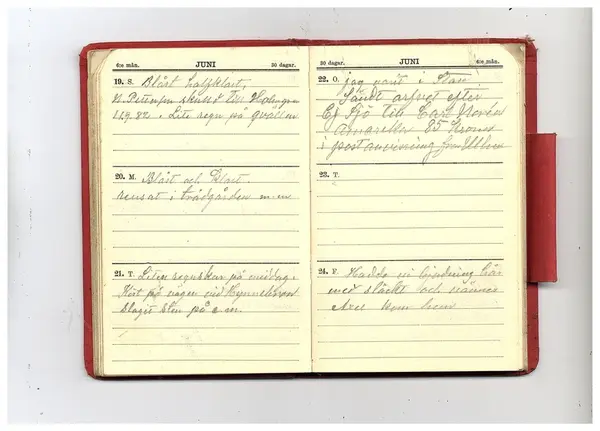 6:e mån. JUNI 30 dagar.
19. S. Blåst halfklart,
N. Peterson skussat till Holmgren
Lite regn på qvällen
20. M. Blåst och klart.
rensat i trädgården m.m
21. T. Liten regnskur på middag.
Kört på vägen vid
Slagit Sten på e.m.
30 dagar. JUNI 6:e mån.
22. O. jag varit i Stan
Sände arfvet efter
Ej Sjö till Carl Norén
Amarika 85 Kronor
i postanvisning från
23. T.
24. F. Hadde vi bjudning här
med släckt och vänner
Axel kom hem